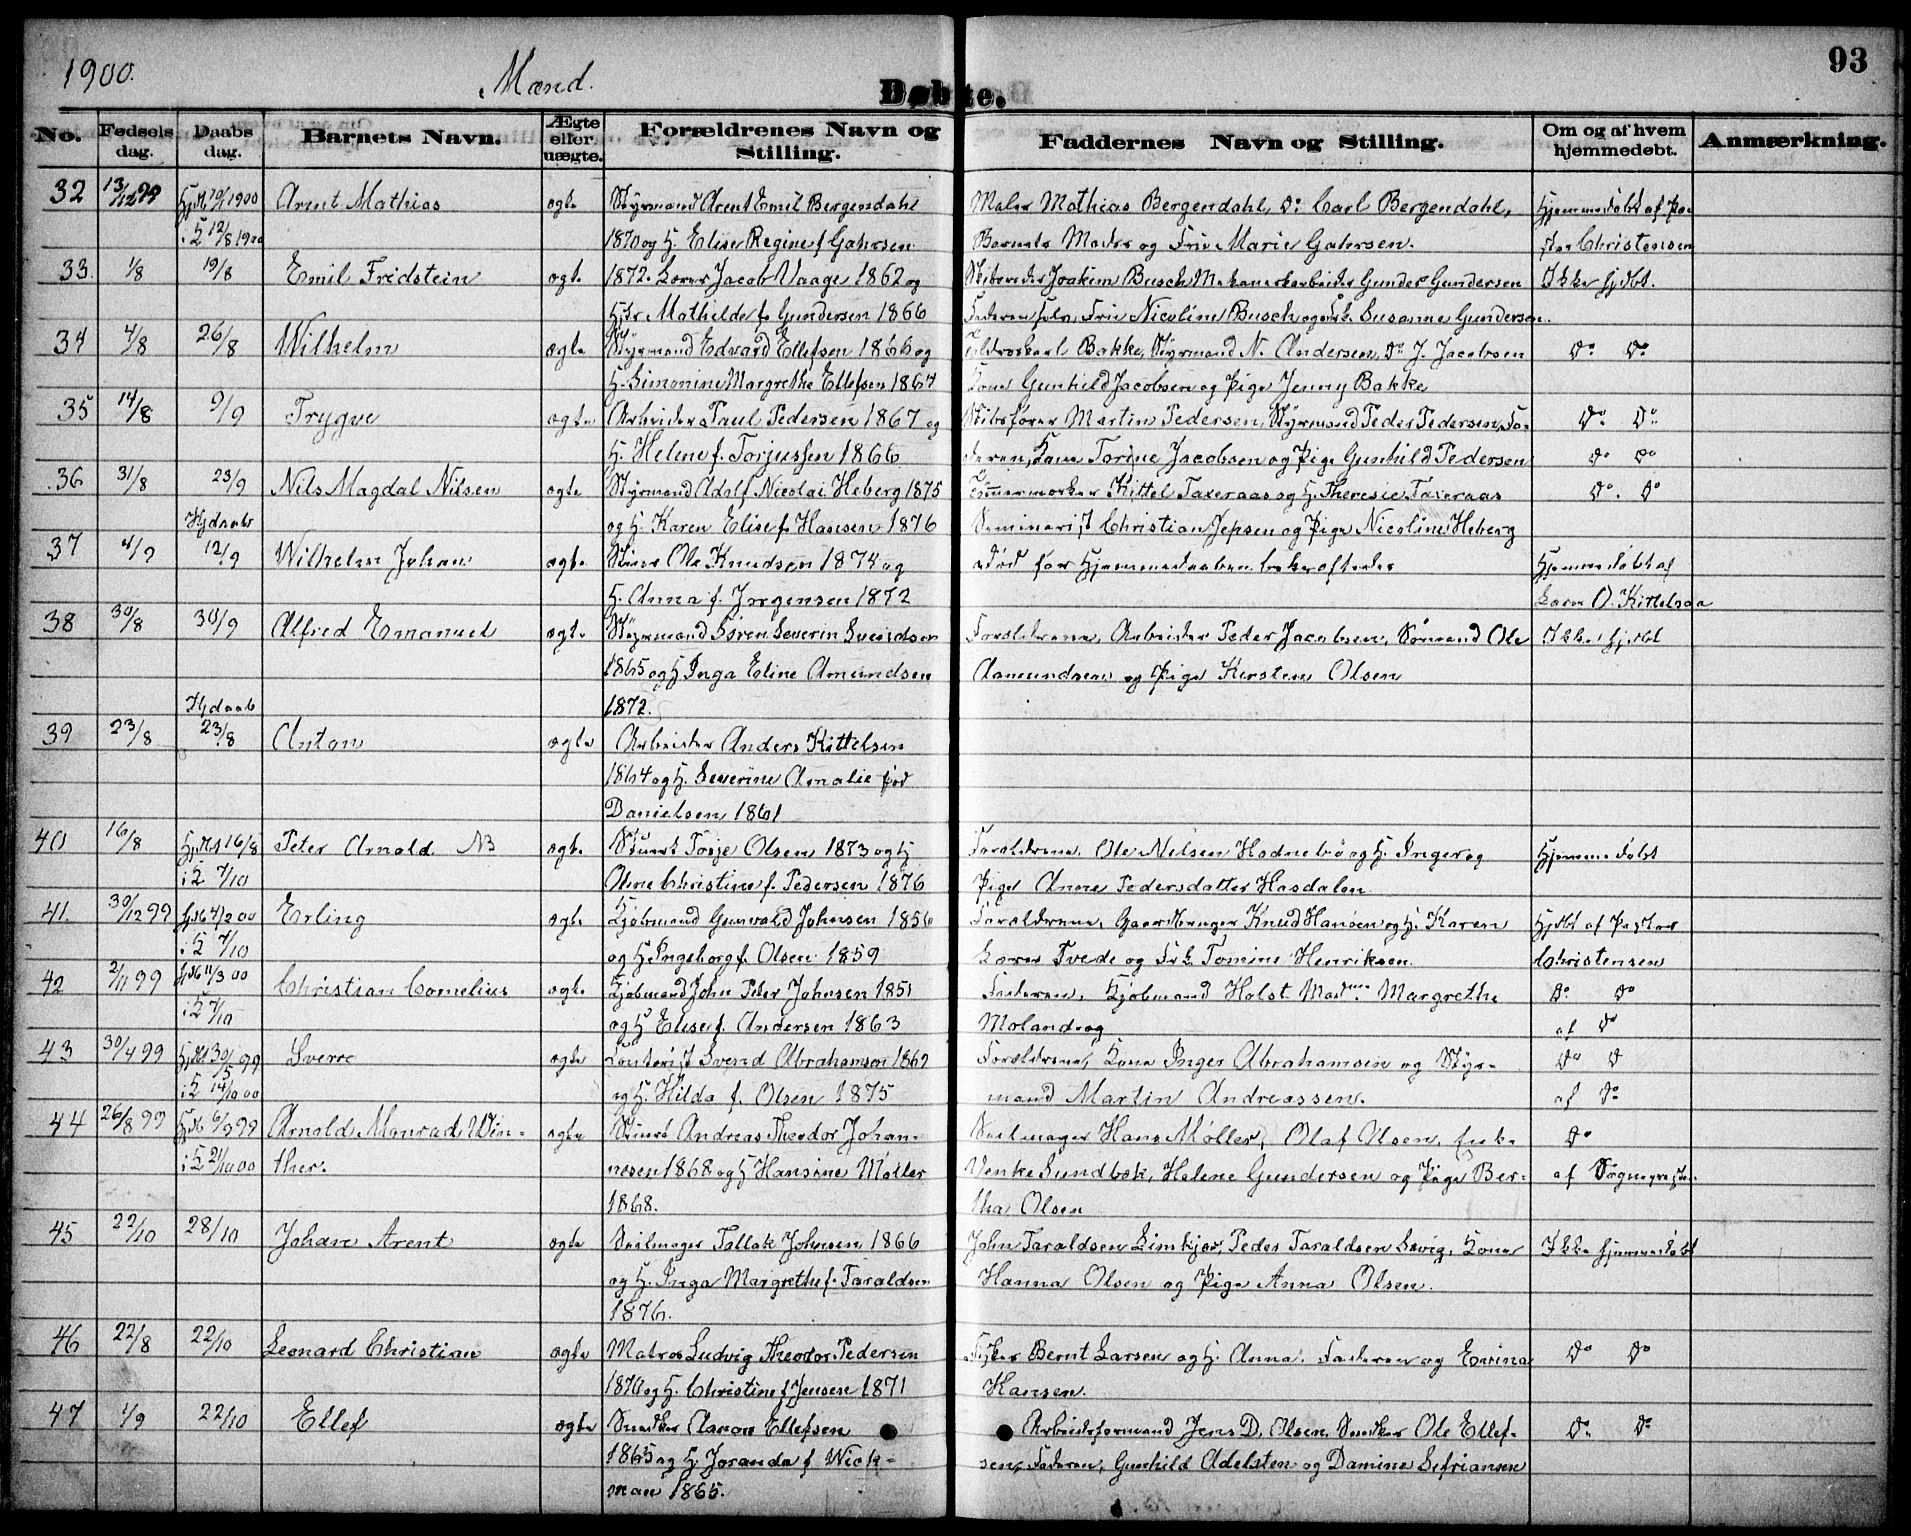 1900.
Mænd.
Døbte.
93
No. Fødsels dag. Daabs dag. Barnets Navn. Ægte eller uægte. Forældrenes Navn og Stilling. Faddernes Navn og Stilling. Om og af hvem hjemmedøbt. Anmærkning.
32 13/12 99 Hjdbt 19/1 1900 Arent Mathias ægte Styrmand Arent Emil Bergendahl Maler Mathias Bergendahl, Do Carl Bergendahl, Hjemmedøbt af Pa-
i K 12/8 1900 1870 og H. Elise Regine f Gahrsen Barnets Moder og Frue Marie Gahrsen. stor Christensen
33. 1/8 19/8 Emil Fridstein ægte 1872. Lærer Jacob Vaage 1862 og Skibsreder Joakim Busch, Mekanerskarbeider Gunder Gundersen Ikke hjdbt.
Hstr Mathilde f. Gundersen 1866 Faderen selv, Frue Nicoline Busch og Frk. Susanne Gundersen.
34 4/8 26/8 Wilhelm ægte Styrmand Edvard Ellefsen 1866 og Carl Bakke, Styrmand N. Andersen, Do J. Jacobsen Do Do
H. Simonine Margrethe Ellefsen 1867 Kone Gunhild Jacobsen og Pige Jenny Bakke
35 14/8 9/9 Trygve ægte Arbeider Paul Pedersen 1867 og Skibsfører Martin Pedersen, Styrmand Peder Pedersen, Fa- Do Do
H. Helene f. Torjussen 1866 deren, Kone Torine Jacobsen og Pige Gunhild Pedersen Do Do
36 31/8 23/9 Nils Magdal Nilsen ægte Styrmand Adolf Nicolai Heberg 1875 Tømmermerker Kittel Taxeraas og H. Theresie Taxeraas Do. Do
Hjdaab og H. Karen Elise f. Hansen 1876 Seminarist Christian Jepsen og Pige Nicoline Heberg
37 4/9 12/9 Wilhelm Johan ægte Ole Knudsen 1874 og død før Hjemmedaaben bekræftedes Hjemmedøbt af
H. Anna f. Jørgensen 1872 Lærer O. Kittelsaa
38 30/8 30/9 Alfred Emanuel ægte Styrmand Søren Severin Svendsen Forældrene, Arbeider Peder Jacobsen, Sømand Ole Ikke hjdbt
1865 og H Inga Eline Amundsen Aamundsen og Pige Kirsten Olsen
Hjdaab 1872.
39 23/8 23/8 Anton ægte Arbeider Anders Kittelsen
1864 og H. Severine Amalie fød
Danielsen 1861
40 16/8 Hjdbt 16/8 Peter Arnold. NB ægte Stuert Torje Olsen 1873 og H Forældrene. Ole Nilsen Hodnebø og H. Inger og Hjemmedøbt
i K 7/10 Oline Christine f. Pedersen 1876 Pige Anne Pedersdatter Hasdalen.
41. 30/12 99 hjdb 4/2 00 Erling ægte Kjøbmand Gunvald Johnsen 1856 Forældrene, Gaardbruger Knud Hansen og H. Karen Hjdbt af Pastor
i K 7/10 og H. Ingeborg f. Olsen 1859 Lærer Tvede og Frk. Tomine Henriksen. Christensen
42 2/11 99 hjdb 11/3 00 Christian Cornelius ægte Kjøbmand John Peter Johnsen 1851 Faderen, Kjøbmand Holst Madme Margrethe Do Do
i K 7/10 og H Elise f. Andersen 1863 Moland og af Do
43 30/4 99 Hjdbt 30/5 99 Sverre ægte Kontorist Svend Abrahamson 1869 Forældrene, Kone Inger Abrahamsen og Styr- Do D
i K 14/10 00 og H. Hilda f. Olsen 1875 mand Martin Andreassen. af Do
44 26/8 99 hjdb 6/9 99 Arnold Monrad Win- ægte Stuert Andreas Theodor Johan- Seilmager Hans Møller, Olaf Olsen, Enke Do
i K 21/10 00 ther. nesen 1868 og H Hansine Møller Venke Sundbæk, Helene Gundersen og Pige Ber- af Sogneprest
1868. tha Olsen
45 22/10 28/10 Johan Arent ægte Seilmager Tallak Johnsen 1866 John Taraldsen Limkjær, Peder Taraldsen Løvig, Kone Ikke hjemmedøbt
og H. Inga Margrethe f. Taraldsen Hanna Olsen og Pige Anna Olsen.
1876.
46 22/8 22/10 Leonard Christian ægte Matros Ludvig Theodor Pedersen Fisker Bernt Larsen og H. Anna. Faderen og Enrina Do Do
1870 og H. Christine f. Jensen 1871 Hansen.
47 1/9 22/10 Ellef ægte Snedker Aanon Ellefsen Arbeidsformand Jens D. Olsen, Snedker Ole Ellef- Do Do
1865 og H Joranda f Wick- sen, Faderen, Gunhild Adelsten og Damine Sefriansen
man 1865.